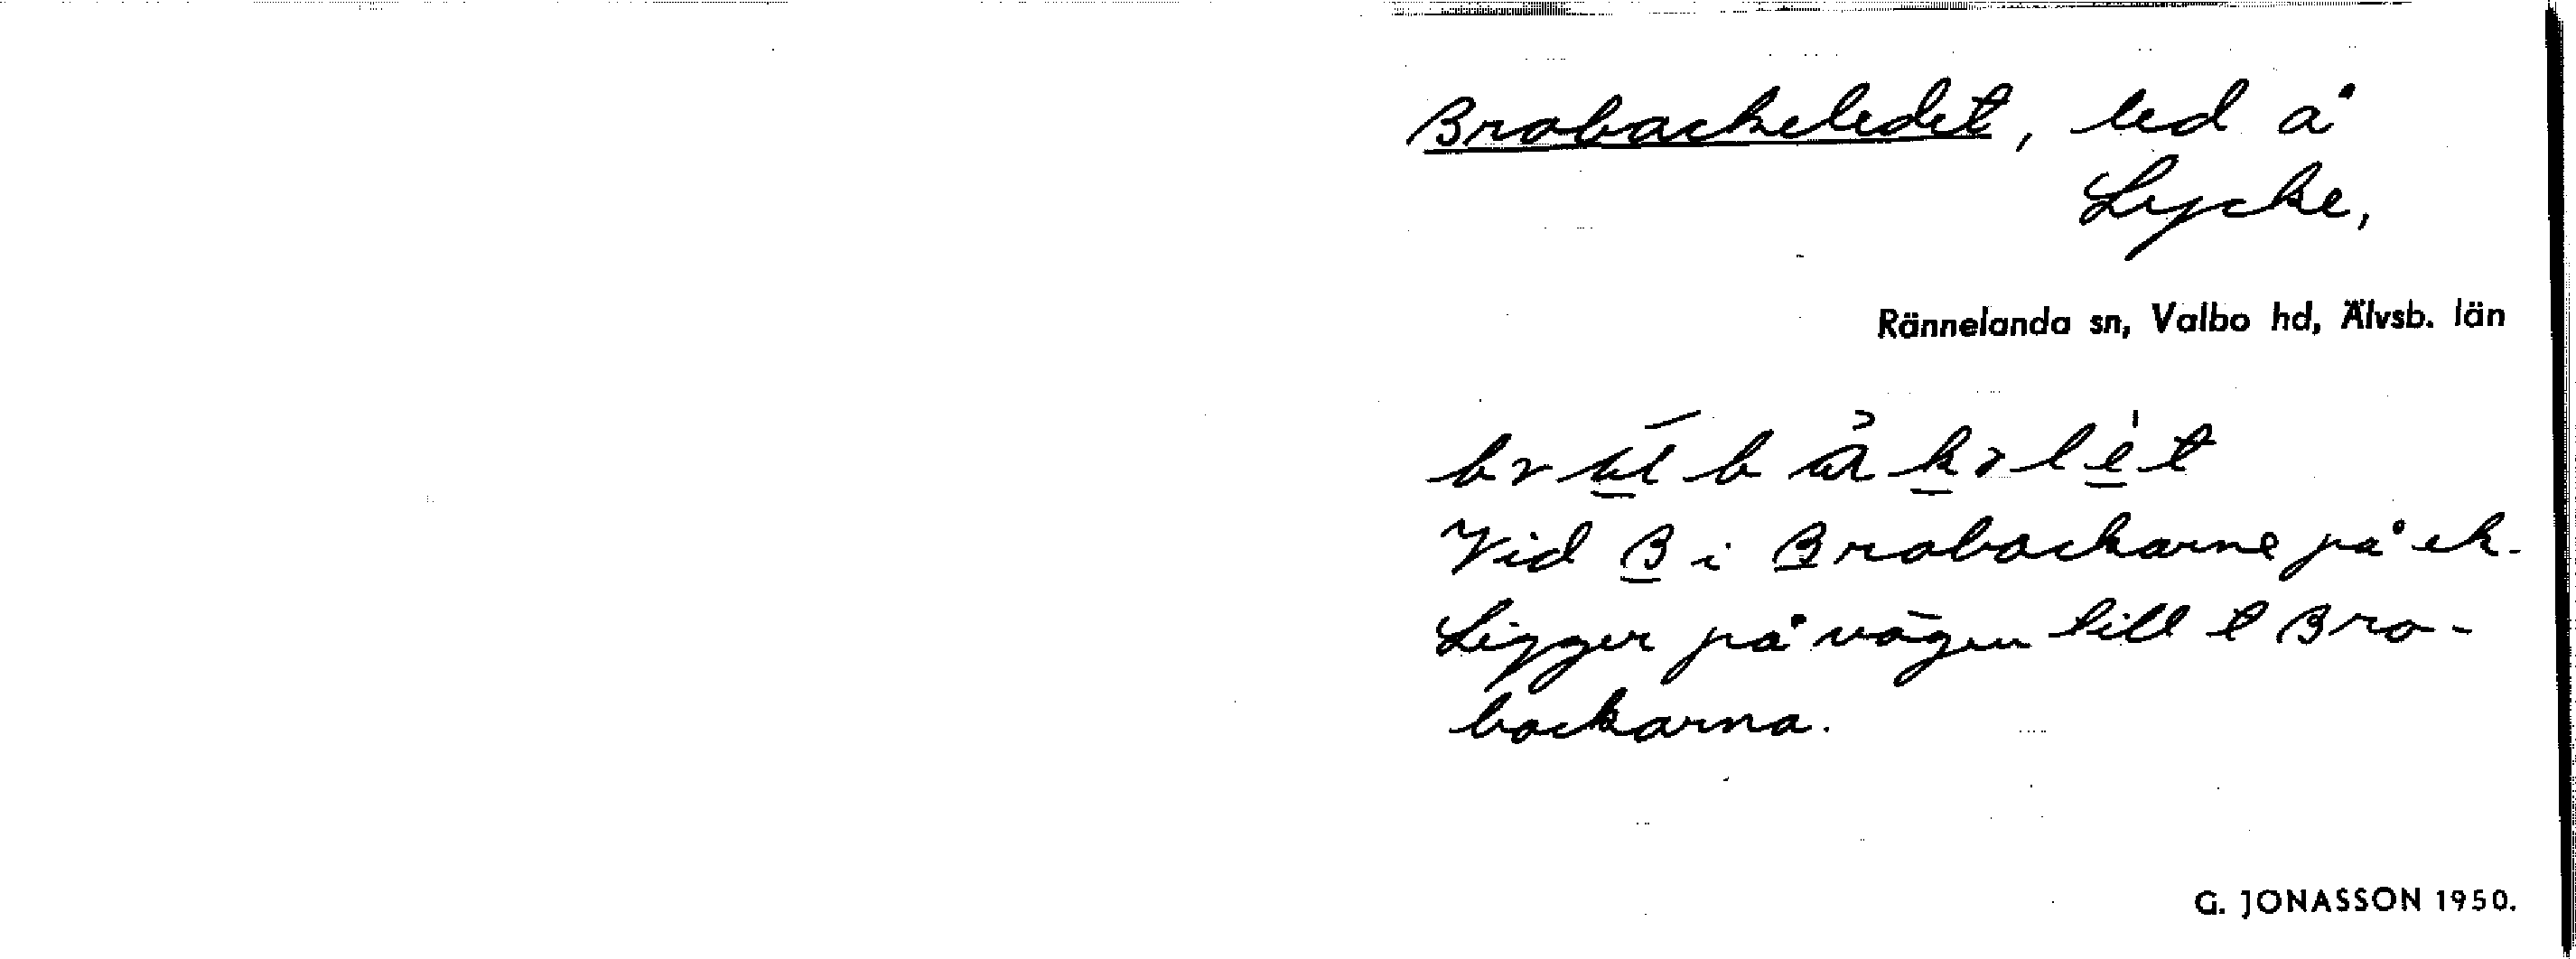 Brobackeledet, led å
Lycke,
Rännelanda sn, Valbo hd, Älvsb. län
Vid B i Brobackarne på ek.
Ligger på vägen till t Bro-
backarna.
G. JONASSON 1950.